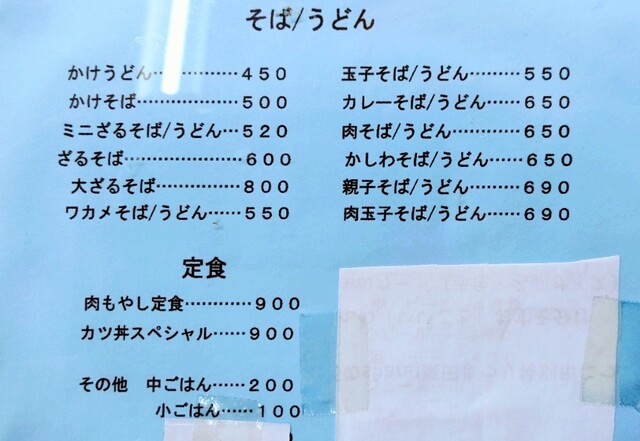 そば/うどん
かけうどん……………４５０
かけそば………………５００
ミニざるそば/うどん…５２０
ざるそば…………………６００
大ざるそば……………８００
ワカメそば/うどん……５５０
玉子そば/うどん………５５０
カレーそば/うどん……６５０
肉そば/うどん…………６５０
かしわそば/うどん……６５０
親子そば/うどん………６９０
肉玉子そば/うどん……６９０
定食
肉もやし定食…………９００
カツ丼スペシャル……９００
その他　中ごはん……２００
小ごはん……１００